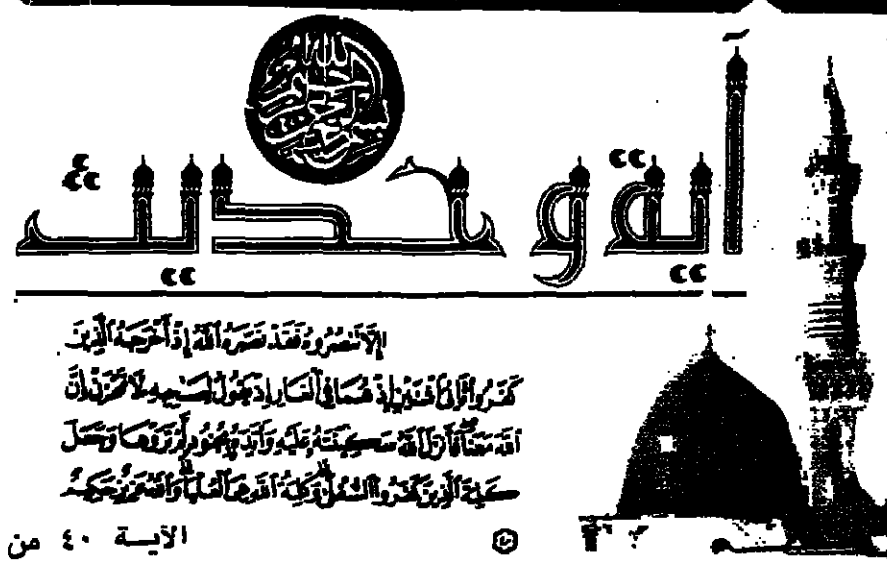 بسم الله الرحمن الرحيم
آية وحديث
إِلَّا تَنصُرُوهُ فَقَدْ نَصَرَهُ ٱللَّهُ إِذْ أَخْرَجَهُ ٱلَّذِينَ
كَفَرُوا۟ ثَانِىَ ٱثْنَيْنِ إِذْ هُمَا فِى ٱلْغَارِ إِذْ يَقُولُ لِصَٰحِبِهِۦ لَا تَحْزَنْ إِنَّ
ٱللَّهَ مَعَنَا فَأَنزَلَ ٱللَّهُ سَكِينَتَهُۥ عَلَيْهِ وَأَيَّدَهُۥ بِجُنُودٍ لَّمْ تَرَوْهَا وَجَعَلَ
كَلِمَةَ ٱلَّذِينَ كَفَرُوا۟ ٱلسُّفْلَىٰ وَكَلِمَةُ ٱللَّهِ هِىَ ٱلْعُلْيَا وَٱللَّهُ عَزِيزٌ حَكِيمٌ
٤٠
الآيـــة ٤٠ من